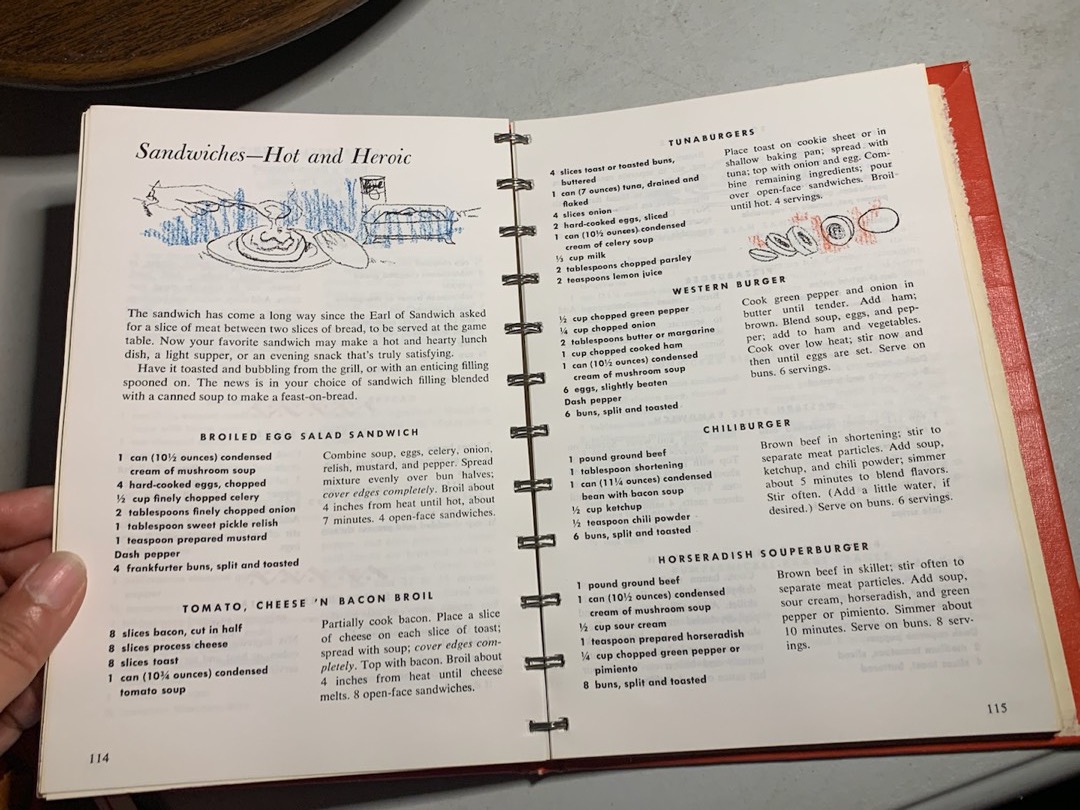 Sandwiches—Hot and Heroic
The sandwich has come a long way since the Earl of Sandwich asked
for a slice of meat between two slices of bread, to be served at the game
table. Now your favorite sandwich may make a hot and hearty lunch
dish, a light supper, or an evening snack that's truly satisfying.
Have it toasted and bubbling from the grill, or with an enticing filling
spooned on. The news is in your choice of sandwich filling blended
with a canned soup to make a feast-on-bread.
BROILED EGG SALAD SANDWICH
1 can (10½ ounces) condensed
cream of mushroom soup
4 hard-cooked eggs, chopped
½ cup finely chopped celery
2 tablespoons finely chopped onion
1 tablespoon sweet pickle relish
1 teaspoon prepared mustard
Dash pepper
4 frankfurter buns, split and toasted
Combine soup, eggs, celery, onion,
relish, mustard, and pepper. Spread
mixture evenly over bun halves;
cover edges completely. Broil about
4 inches from heat until hot, about
7 minutes. 4 open-face sandwiches.
TOMATO, CHEESE 'N BACON BROIL
8 slices bacon, cut in half
8 slices process cheese
8 slices toast
1 can (10¾ ounces) condensed
tomato soup
Partially cook bacon. Place a slice
of cheese on each slice of toast;
spread with soup; cover edges com-
pletely. Top with bacon. Broil about
4 inches from heat until cheese
melts. 8 open-face sandwiches.
114
TUNABURGERS
4 slices toast or toasted buns,
buttered
1 can (7 ounces) tuna, drained and
flaked
4 slices onion
2 hard-cooked eggs, sliced
1 can (10½ ounces) condensed
cream of celery soup
⅓ cup milk
2 tablespoons chopped parsley
2 teaspoons lemon juice
Place toast on cookie sheet or in
shallow baking pan; spread with
tuna; top with onion and egg. Com-
bine remaining ingredients; pour
over open-face sandwiches. Broil
until hot. 4 servings.
WESTERN BURGER
½ cup chopped green pepper
¼ cup chopped onion
2 tablespoons butter or margarine
1 cup chopped cooked ham
1 can (10½ ounces) condensed
cream of mushroom soup
6 eggs, slightly beaten
Dash pepper
6 buns, split and toasted
Cook green pepper and onion in
butter until tender. Add ham;
brown. Blend soup, eggs, and pep-
per; add to ham and vegetables.
Cook over low heat; stir now and
then until eggs are set. Serve on
buns. 6 servings.
CHILIBURGER
1 pound ground beef
1 tablespoon shortening
1 can (11¼ ounces) condensed
bean with bacon soup
½ cup ketchup
½ teaspoon chili powder
6 buns, split and toasted
Brown beef in shortening; stir to
separate meat particles. Add soup,
ketchup, and chili powder; simmer
about 5 minutes to blend flavors.
Stir often. (Add a little water, if
desired.) Serve on buns. 6 servings.
HORSERADISH SOUPERBURGER
1 pound ground beef
1 can (10½ ounces) condensed
cream of mushroom soup
½ cup sour cream
1 teaspoon prepared horseradish
¼ cup chopped green pepper or
pimiento
8 buns, split and toasted
Brown beef in skillet; stir often to
separate meat particles. Add soup,
sour cream, horseradish, and green
pepper or pimiento. Simmer about
10 minutes. Serve on buns. 8 serv-
ings.
115